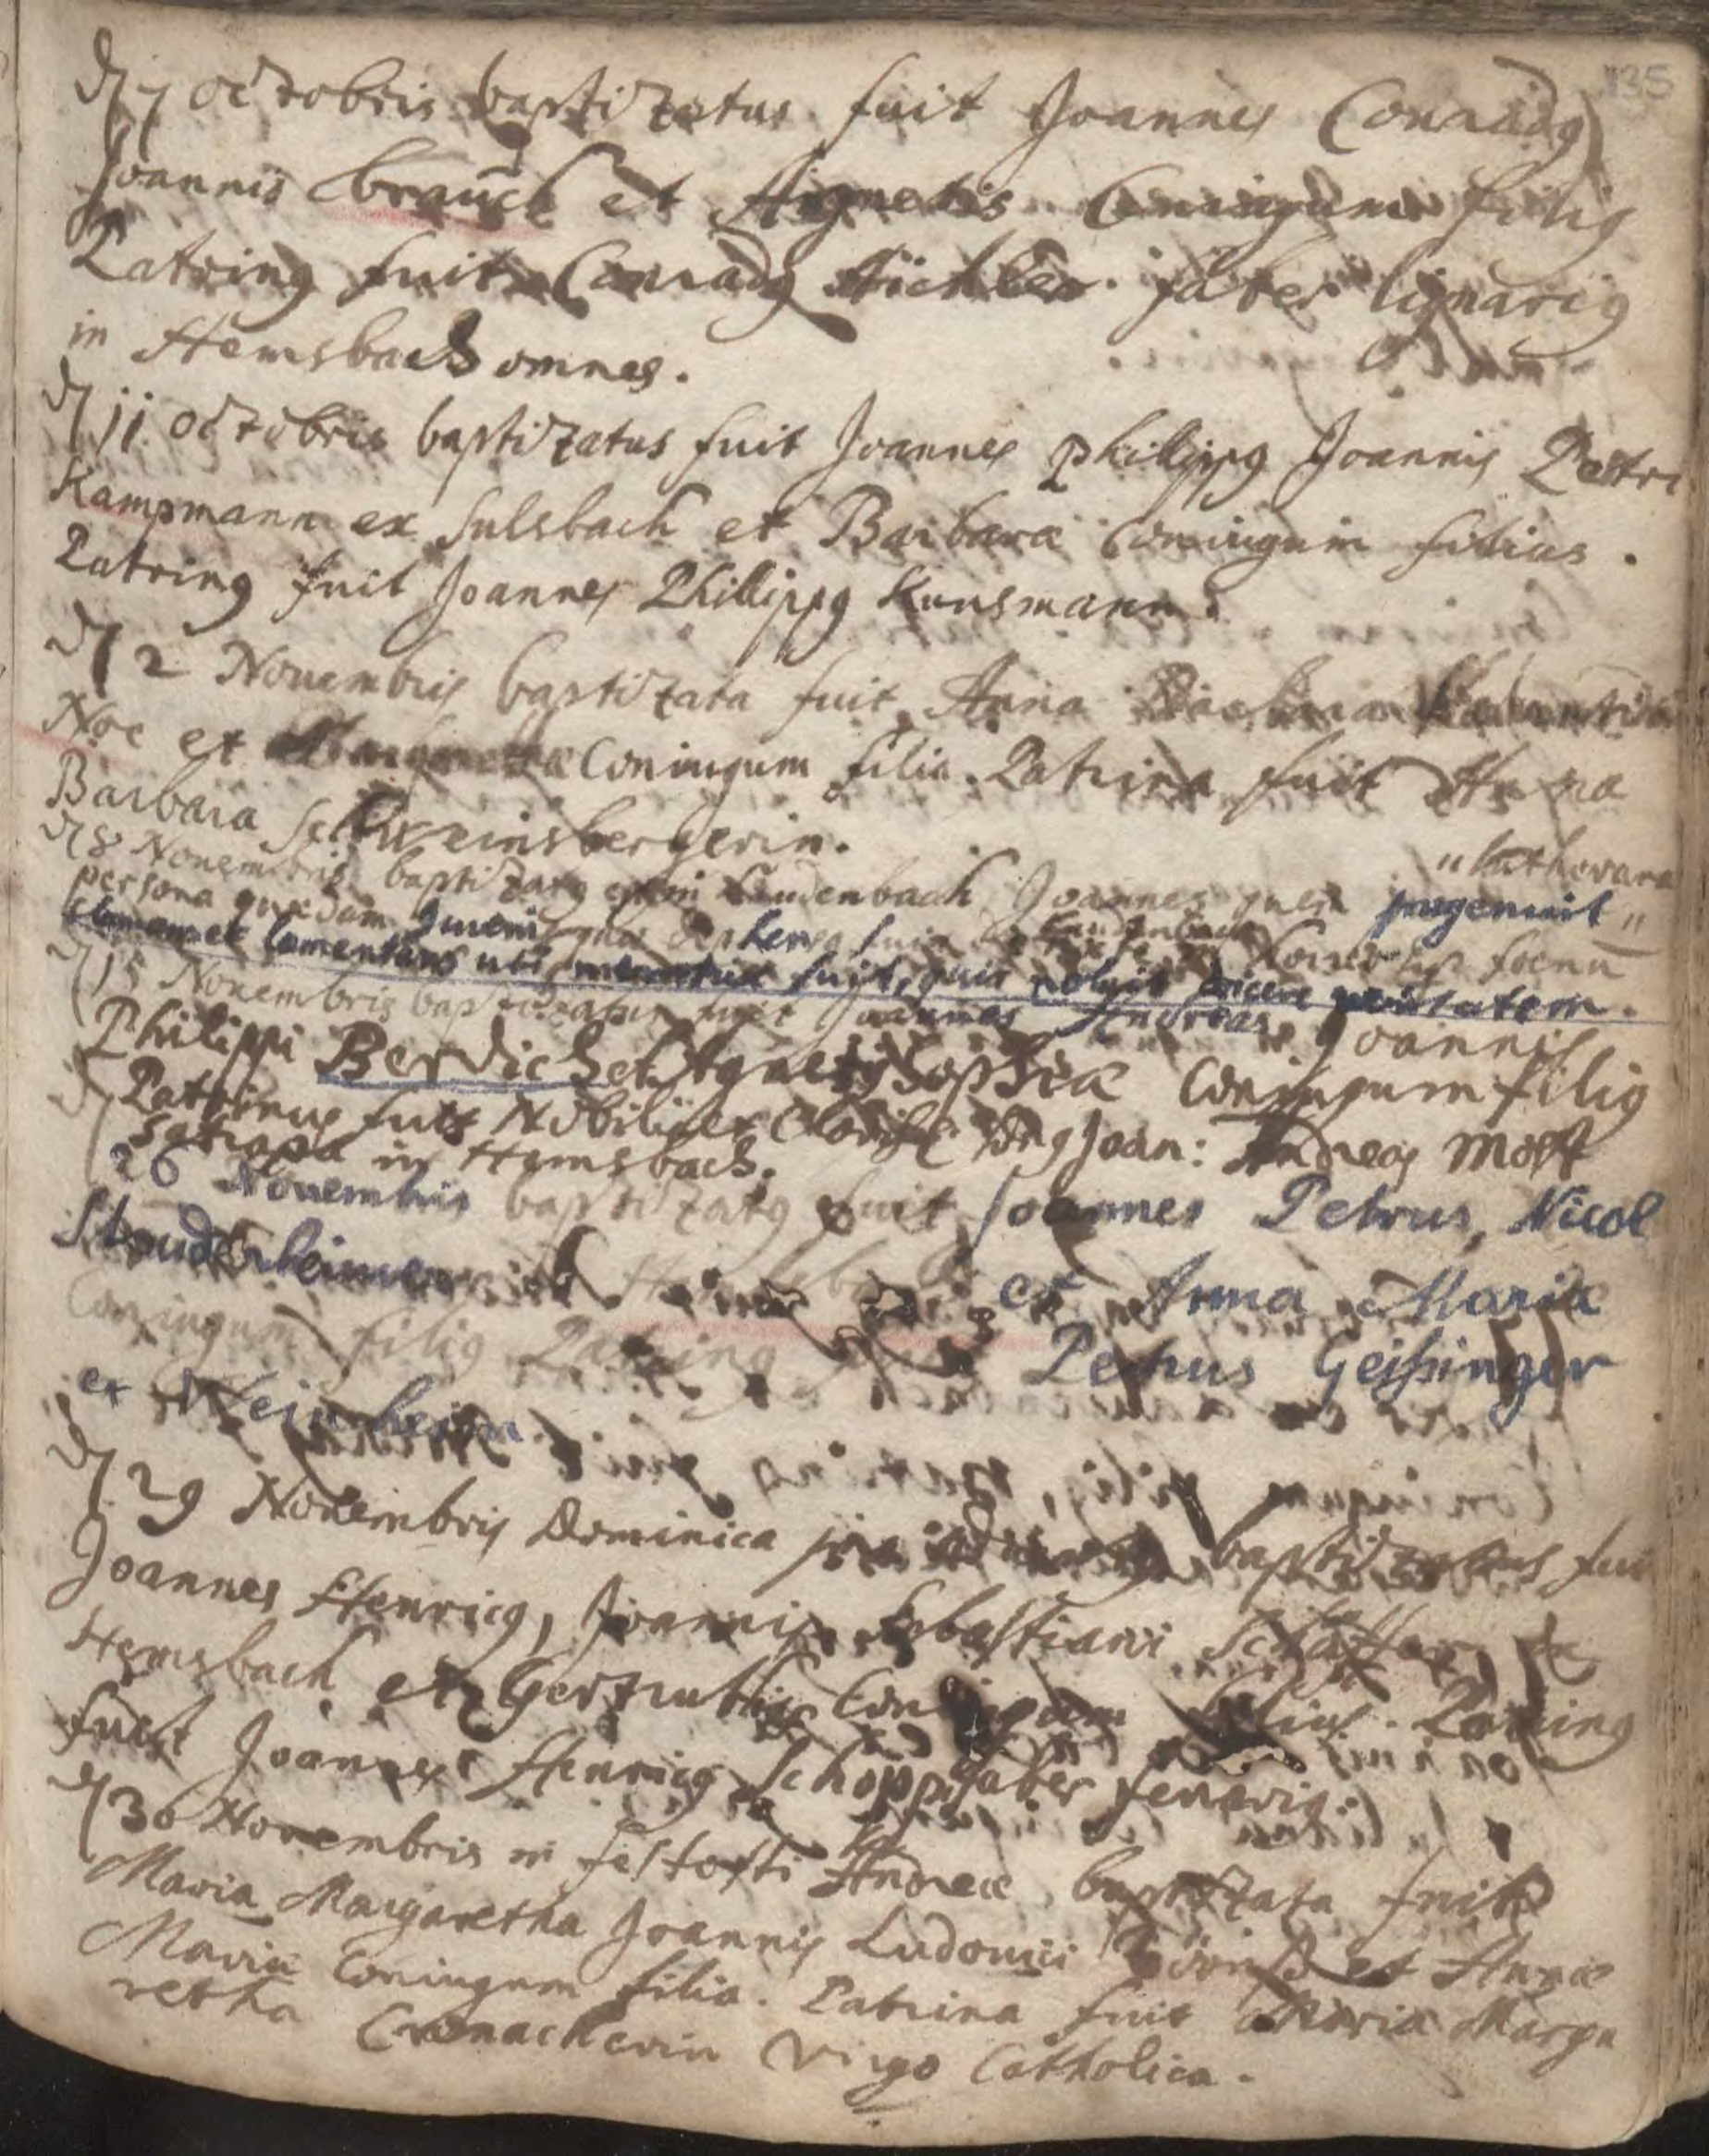 135
d 7 octobris baptizatus fuit Joannes Conradg
Joannis brauch et Agnetis Coniugum filig
Patring fuit Conradg faber lignarig
in Hemsbach omnes.
d 11 octobris baptizatus fuit Joannes Philippg Joannis Petri
Kampmann ex Sulsbach et Barbara Coniugum filius.
Patring fuit Joannes Philippg Kunsmann.
d 2 Nouembris baptizata fuit Anna
Noe et Margaretha Coniugum filia. Patrina fuit Anna
Barbara Schweinsbergerin.
"Lutherana
d 8 Nouembris baptizatg Laudenbach Joannes quem progenuit "
persona quaedam
lamentans uti meretrix fuit, quia noluit dicere veritatem.
d 15 Nouembris baptizatus fuit Joannes Andreas, Joannis
Philippi Berdich et Agnetis Sophiæ Coniugum filig
Patrinus fuit Nobilis et Joan: Andreas Mosst
Satrapa in Hemsbach.
d 26 Nouembris baptizatg fuit Joannes Petrus, Nicol
Studerheimer et Anna Maria
Coniugum filig Patring Petrus Geißinger
ex Weinheim
d. 29 Nouembris Dominica baptizatus fuit
Joannes Henricg, Joannis Sebastiani Schäffer
Hemsbach et Gertrudis Coniugum filius. Patring
fuit Joannes Henricg Schopp faber ferrarig.
d 30 Nouembris in festo sti Andreæ baptizata fuit
Maria Margaretha Joannis Ludouici et Annæ
Mariæ Coniugum filia. Patrina fuit Maria Marga
retha Cronacherin Virgo Catholica.